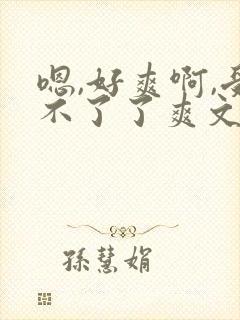 嗯,好爽啊,受
不了了爽文
孫慧娟